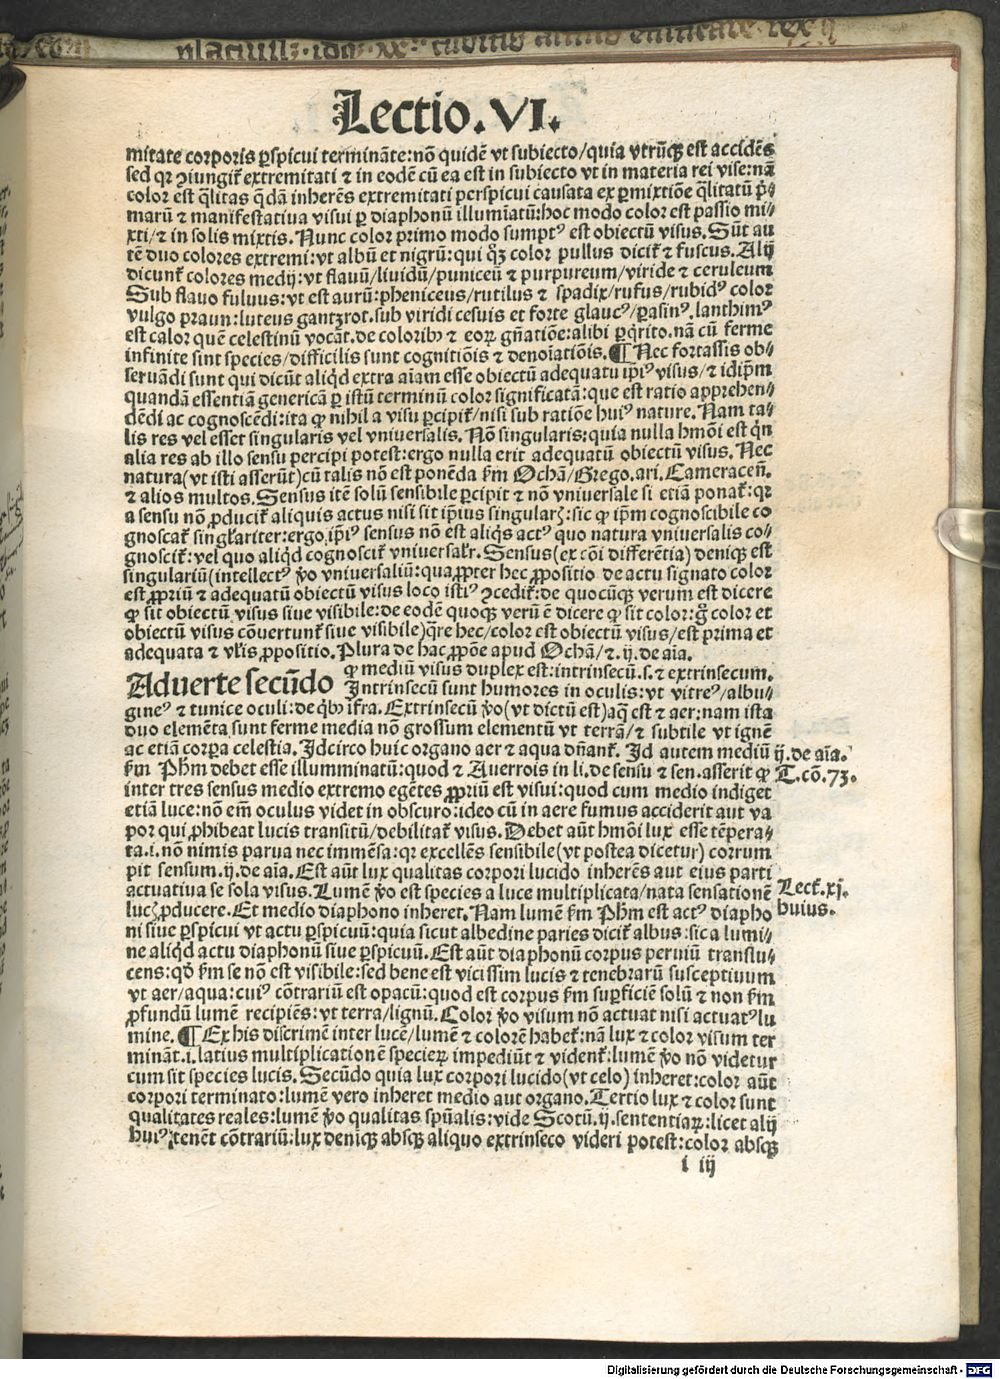 Lectio. VI.
mitate corporis ꝑspicui terminãte: nõ quidẽ vt subiecto/ quia vtrũqꝫ est accidẽs
sed qꝛ ↄiungit̃ extremitati ⁊ in eodẽ cũ ea est in subiecto vt in materia rei vise: nã
color est q̃litas q̃dã inherẽs extremitati perspicui causata ex ꝑmixtiõe q̃litatũ p̃⸗
marũ ⁊ manifestatiua visui ꝑ diaphonũ illumiatũ: hoc modo color est passio mi⸗
xti/ ⁊ in solis mixtis. Nunc color primo modo sumptꝰ est obiectũ visus. Sũt au
tẽ duo colores extremi: vt albũ et nigrũ: qui q̃ꝫ color pullus dicit̃ ⁊ fuscus. Alij
dicunt̃ colores medij: vt flauũ/ liuidũ/ puniceũ ⁊ purpureum/ viride ⁊ ceruleum
Sub flauo fuluus: vt est aurũ: pheniceus/ rutilus ⁊ spadix/ rufus/ rubidꝰ color
vulgo praun: luteus gantzrot. sub viridi cesuis et forte glaucꝰ/ prasinꝰ. Ianthimꝰ
est calor quẽ celestinũ vocãt. de coloribꝰ ⁊ eoꝝ gñatiõe: alibi ꝑq̃rito. nã cũ ferme
infinite sint species/ difficilis sunt cognitiõis ⁊ denoiatiõis. ¶ Nec fortassis ob⸗
seruãdi sunt qui dicũt aliq̃d extra aiam esse obiectũ adequatũ ip̃iꝰ visus/ ⁊ id ip̃m
quandã essentiam genericã ꝑ istũ terminũ color significatã: que est ratio apprehen⸗
dẽdi ac cognoscẽdi: ita ꝙ nihil a visu ꝑcipit̃/ nisi sub ratiõe huiꝰ nature. Nam ta⸗
lis res vel esset singularis vel vniuersalis. Nõ singularis: quia nulla hmõi est q̃n
alia res ab illo sensu percipi potest: ergo nulla erit adequatũ obiectũ visus. Nec
natura (vt isti asserũt) cũ talis nõ est ponẽda ẜm Ochã/ Grego. ari. Cameraceñ.
⁊ alios multos. Sensus itẽ solũ sensibile ꝑcipit ⁊ nõ vniuersale si etiã ponat̃: qꝛ
a sensu nõ ꝓducit̃ aliquis actus nisi sit ip̃ius singularꝫ: sic ꝙ ip̃m cognoscibile co
gnoscat̃ singl̃ariter: ergo ip̃iꝰ sensus nõ est aliq̃s actꝰ quo natura vniuersalis co⸗
gnoscit̃: vel quo aliq̃d cognoscit̃ vniuersal̃r. Sensus (ex cõi differẽtia) deniqꝫ est
singulariũ (intellectꝰ ṽo vniuersaliũ: quaꝓpter hec ꝓpositio de actu signato color
est ꝓpriũ ⁊ adequatũ obiectũ visus loco istiꝰ ↄcedit̃: de quocũqꝫ verum est dicere
ꝙ sit obiectũ visus siue visibile: de eodẽ quoqꝫ verũ ẽ dicere ꝙ sit color: g̃ color et
obiectũ visus cõuertunt̃ siue visibile) q̃re hec/ color est obiectũ visus/ est prima et
adequata ⁊ vl̃is ꝓpositio. Plura de hac ꝓpõe apud Ochã/ ⁊. ij. de aia.
Aduerte secũdo ꝙ mediũ visus duplex est: intrinsecũ. s. ⁊ extrinsecum.
Intrinsecũ sunt humores in oculis: vt vitreꝰ/ albu⸗
gineꝰ ⁊ tunice oculi: de q̃bꝰ ĩfra. Extrinsecũ ṽo (vt dictũ est) aq̃ est ⁊ aer: nam ista
duo elemẽta sunt ferme media nõ grossum elementũ vt terrã/ ⁊ subtile vt ignẽ
ac etiã corꝑa celestia. Idcirco huic organo aer ⁊ aqua dñant̃. Id autem mediũ
ij. de aia.
ẜm Ph̃m debet esse illumminatũ: quod ⁊ Auerrois in li. de sensu ⁊ sen. asserit ꝙ
T. cõ. 73.
inter tres sensus medio extremo egẽtes ꝓpriũ est visui: quod cum medio indiget
etiã luce: non em̃ oculus videt in obscuro: ideo cũ in aere fumus acciderit aut va
por qui ꝓhibeat lucis transitũ/ debilitat̃ visus. Debet aũt hmõi lux esse tẽpera⸗
ta. i. nõ nimis parua nec immẽsa: qꝛ excellẽs sensibile (vt postea dicetur) corrum
pit sensum. ij. de aia. Est aũt lux qualitas corpori lucido inherẽs aut eius parti
actuatiua se sola visus. Lumẽ ṽo est species a luce multiplicata/ nata sensationẽ
Lect̃. xj.
lucꝫ ꝓducere. Et medio diaphono inheret. Nam lumẽ ẜm Ph̃m est actꝰ diapho
huius.
ni siue ꝑspicui vt actu ꝑspicuũ: quia sicut albedine paries dicit̃ albus: sic a lumi⸗
ne aliq̃d actu diaphonũ siue ꝑspicuũ. Est aũt diaphonũ corpus peruiũ translu⸗
cens: qd̃ ẜm se nõ est visibile: sed bene est vicissim lucis ⁊ tenebrarũ susceptiuum
vt aer/ aqua: cuiꝰ cõtrariũ est opacũ: quod est corpus ẜm suꝑficiẽ solũ ⁊ non ẜm
ꝓfundũ lumẽ recipiẽs: vt terra/ lignũ. Color ṽo visum nõ actuat nisi actuatꝰ lu
mine. ¶ Ex his discrimẽ inter lucẽ/ lumẽ ⁊ colorẽ habet̃: nã lux ⁊ color visum ter
minãt. i. latius multiplicationẽ specieꝝ impediũt ⁊ vident̃: lumẽ ṽo nõ videtur
cum sit species lucis. Secũdo quia lux corpori lucido (vt celo) inheret: color aũt
corpori terminato: lumẽ vero inheret medio aut organo. Tertio lux ⁊ color sunt
qualitates reales: lumẽ ṽo qualitas spũalis: vide Scotũ. ij. sententiaꝝ: licet alij
huiꝰ teneãt cõtrariũ: lux deniqꝫ absqꝫ aliquo extrinseco videri potest: color absqꝫ
i iij
Digitalisierung gefördert durch die Deutsche Forschungsgemeinschaft - DFG